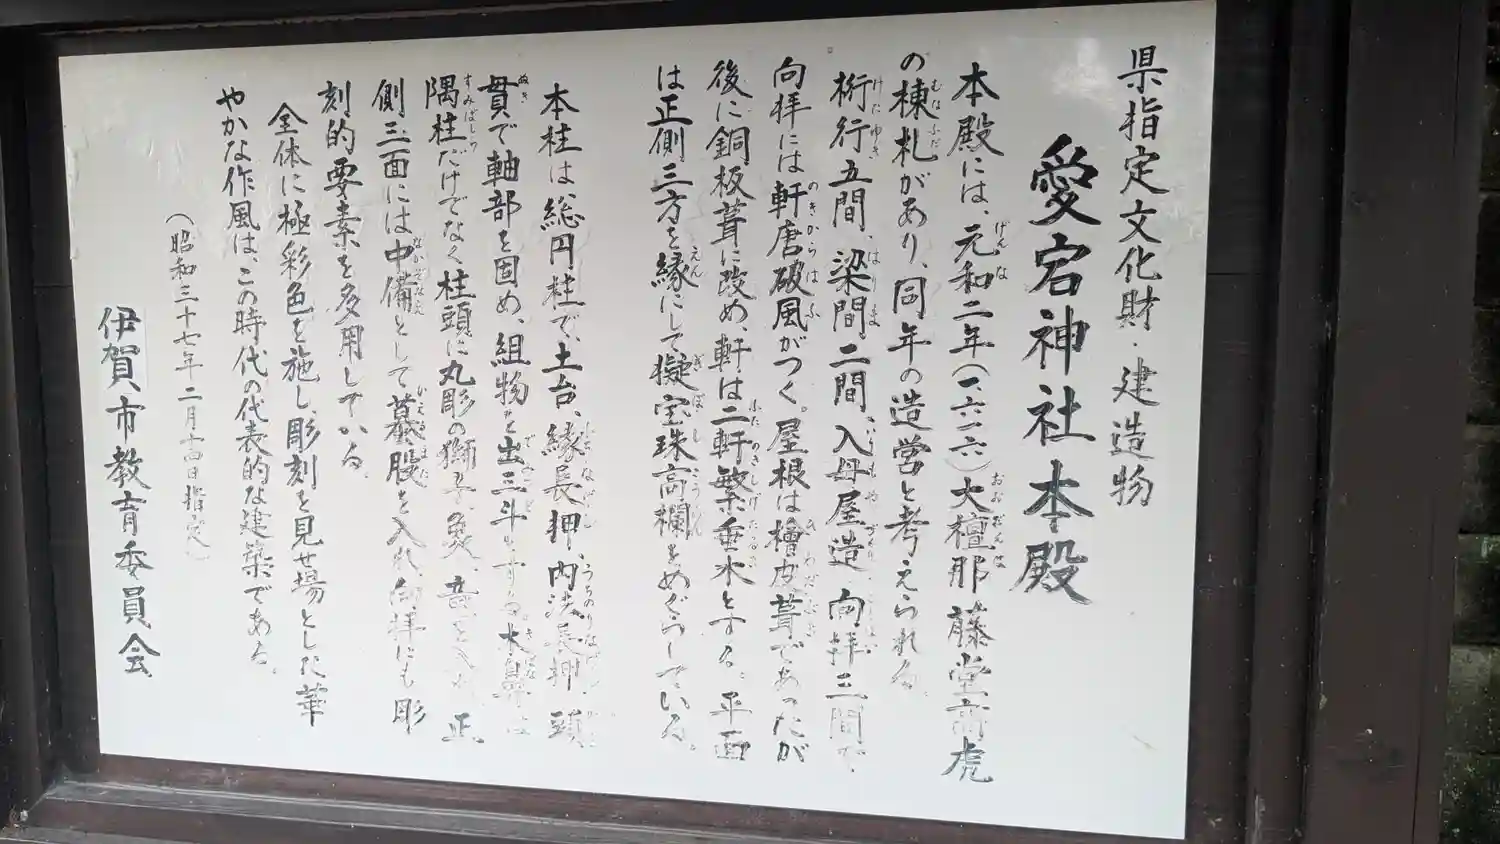 県指定文化財・建造物
愛宕神社本殿
本殿には、元和二年(一六一六)大檀那藤堂高虎
の棟札があり、同年の造営と考えられる。
桁行五間、梁間二間、入母屋造、向拝三間で、
向拝には軒唐破風がつく。屋根は檜皮葺であったが
後に銅板葺に改め、軒は二軒繁垂木とする。平面
は正側三方を縁にして擬宝珠高欄をめぐらしている。
本柱は総円柱で、土台、縁長押、内法長押、頭
貫で軸部を固め、組物を出三斗とする。木鼻は
隅柱だけでなく柱頭に丸彫の獅子、象、竜を入れ、正
側三面には中備として蟇股を入れ、向拝にも彫
刻的要素を多用している。
全体に極彩色を施し、彫刻を見せ場とした華
やかな作風は、この時代の代表的な建築である。
(昭和三十七年二月十四日指定)
伊賀市教育委員会